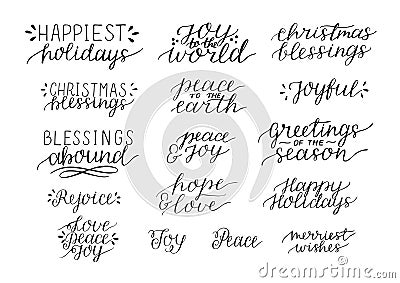 HAPPIEST
holidays
Joy
to the
world
christmas
blessings
CHRISTMAS
blessings
peace
TO THE
earth
Joyful
BLESSINGS
abound
peace
& Joy
greetings
OF THE
season
Rejoice
hope
& love
Happy
Holidays
Love
Peace
Joy
Joy
Peace
merriest
wishes
dreamstime.com